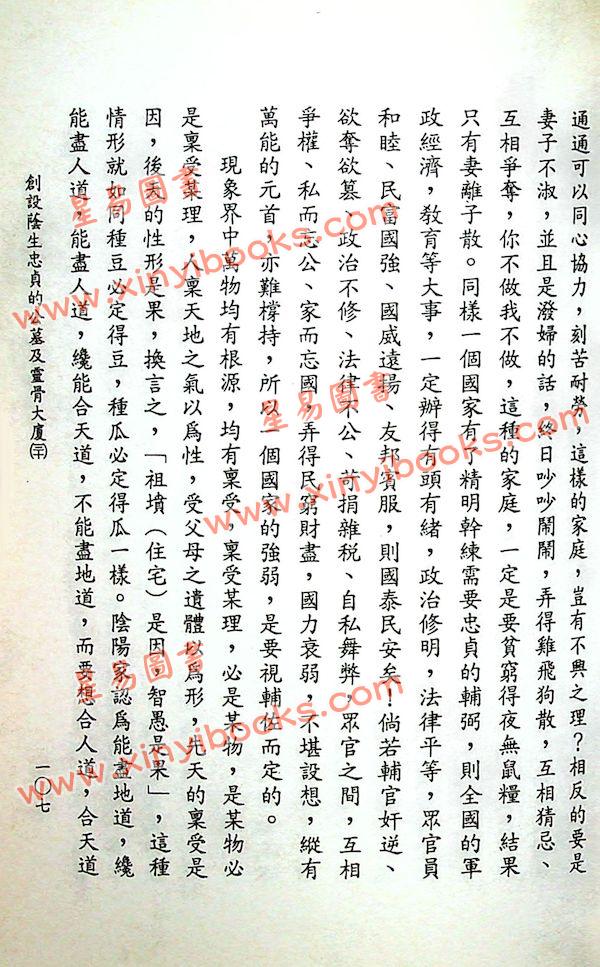 通通可以同心協力，刻苦耐勞，這樣的家庭，豈有不興之理？相反的要是
妻子不淑，並且是潑婦的話，終日吵吵鬧鬧，弄得雞飛狗散，互相猜忌、
互相爭奪，你不做我不做，這種的家庭，一定是要貧窮得夜無鼠糧，結果
只有妻離子散。同樣一個國家有了精明幹練需要忠貞的輔弼，則全國的軍
政經濟，教育等大事，一定辦得有頭有緒，政治修明，法律平等，眾官員
和睦、民富國強、國威遠揚、友邦賓服，則國泰民安矣！倘若輔官奸逆、
欲奪欲篡、政治不修、法律不公、苛捐雜稅、自私舞弊，眾官之間，互相
爭權、私而忘公、家而忘國，弄得民窮財盡，國力衰弱，不堪設想，縱有
萬能的元首，亦難撐持，所以一個國家的強弱，是要視輔佐而定的。
現象界中萬物均有根源，均有稟受，稟受某理，必是某物，是某物必
是稟受某理，人稟天地之氣以爲性，受父母之遺體以爲形，先天的稟受是
因，後天的性形是果，換言之，「祖墳（住宅）是因，智愚是果」，這種
情形就如同種豆必定得豆，種瓜必定得瓜一樣。陰陽家認爲能盡地道，纔
能盡人道，能盡人道，纔能合天道，不能盡地道，而要想合人道，合天道
創設蔭生忠貞的公墓及靈骨大廈
一〇七
星易圖書
www.xinyibooks.com
星易圖書
www.xinyibooks.com
星易圖書
www.xinyibooks.com